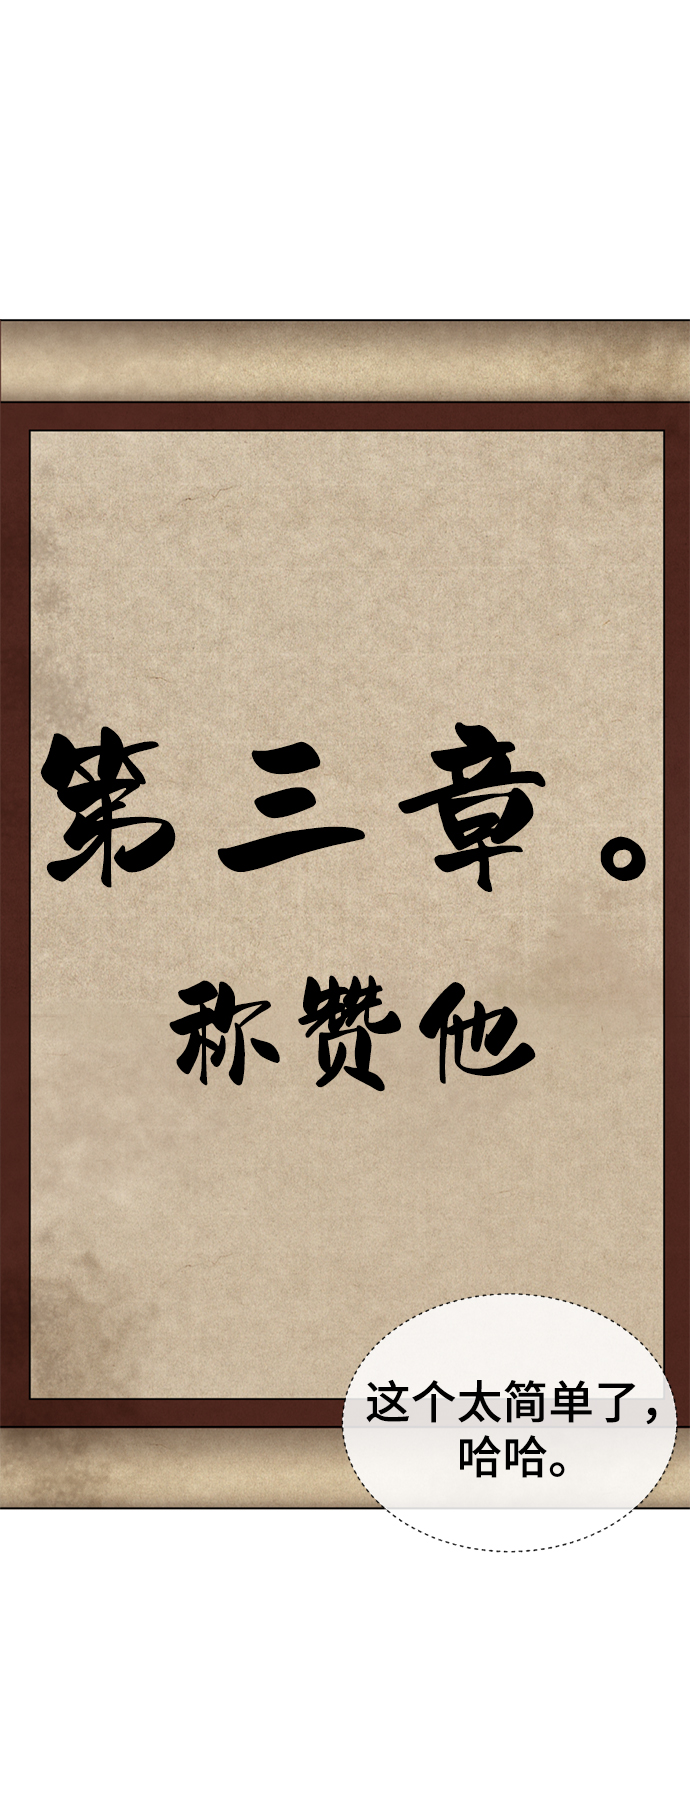 第三章。
称赞他
这个太简单了，
哈哈。